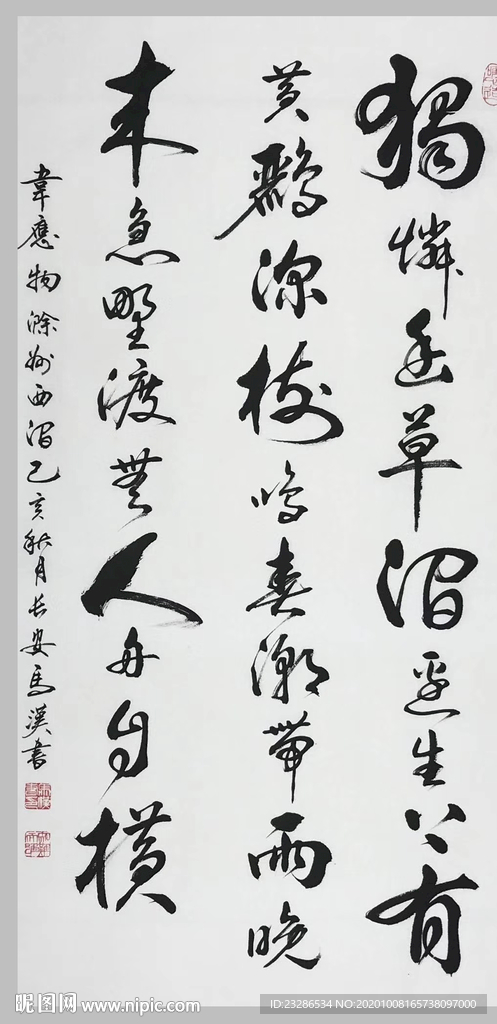 獨憐幽草澗邊生上有
黃鸝深樹鳴春潮帶雨晚
来急野渡無人舟自橫
韋應物滁州西澗己亥秋月長安馬漢書
昵图网 www.nipic.com
ID:23286534 NO:20201008165738097000